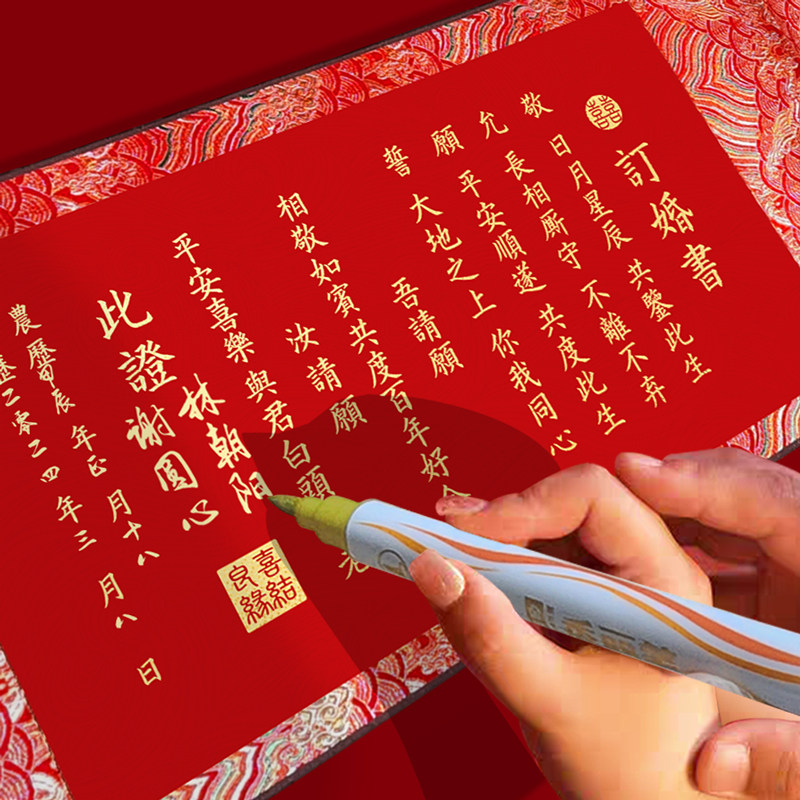 囍
訂婚書
敬 日月星辰 共鑒此生
允 長相廝守 不離不弃
願 平安順遂 共度此生
誓 大地之上 你我同心
吾請願
相敬如賓共度百年好合
汝請願
平安喜樂與君白頭老
林朝陽
謝圓心
此證
喜結良緣
農曆甲辰年正月十八
曆二零二四年三月八日